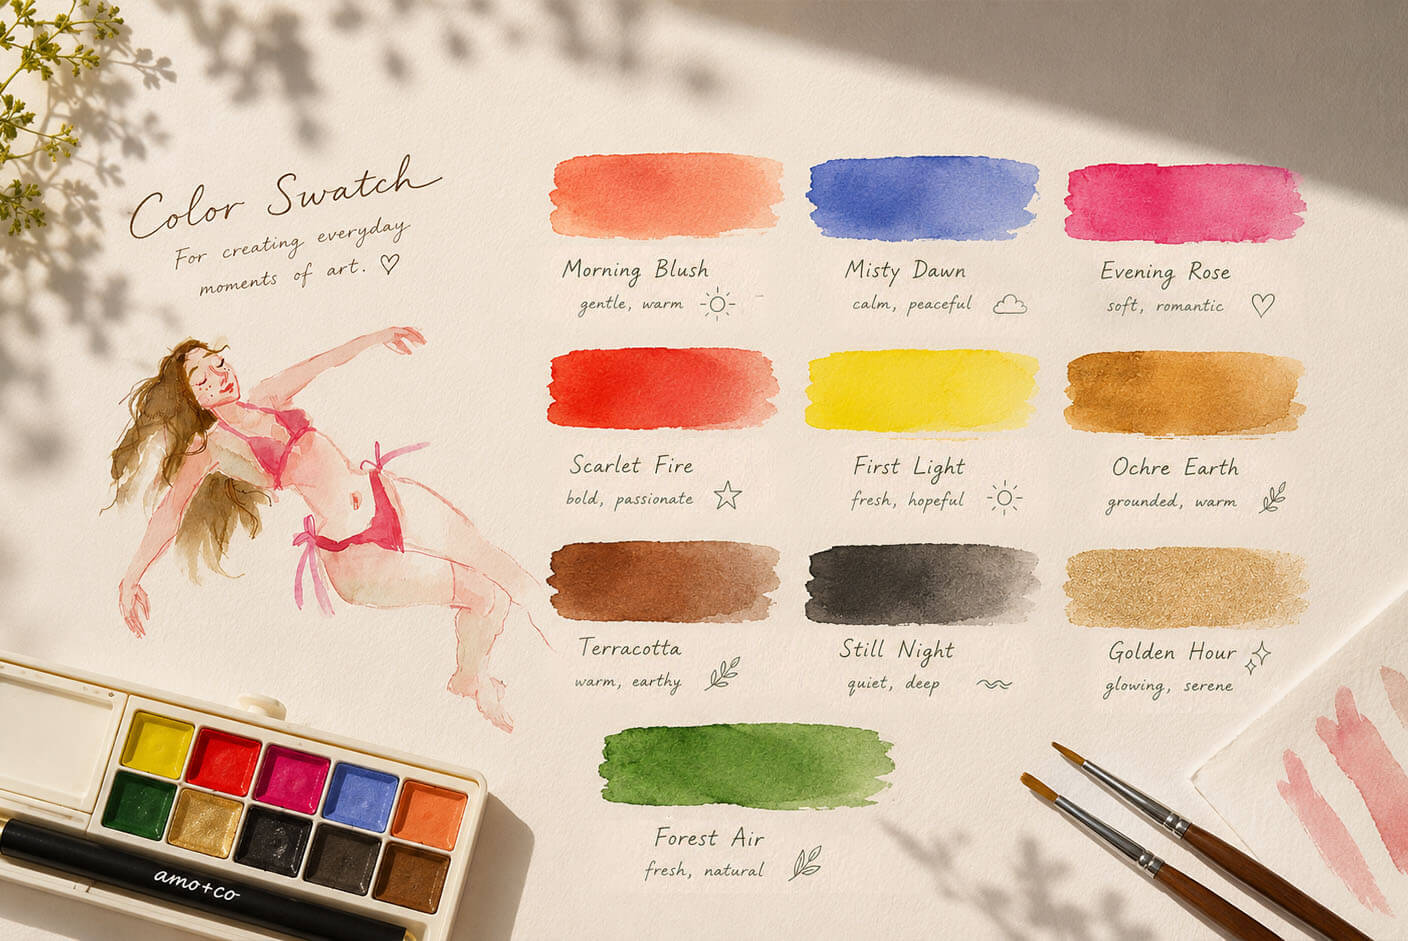 Color Swatch
For creating everyday
moments of art.
Morning Blush
gentle, warm
Misty Dawn
calm, peaceful
Evening Rose
soft, romantic
Scarlet Fire
bold, passionate
First Light
fresh, hopeful
Ochre Earth
grounded, warm
Terracotta
warm, earthy
Still Night
quiet, deep
Golden Hour
glowing, serene
Forest Air
fresh, natural
amo+co